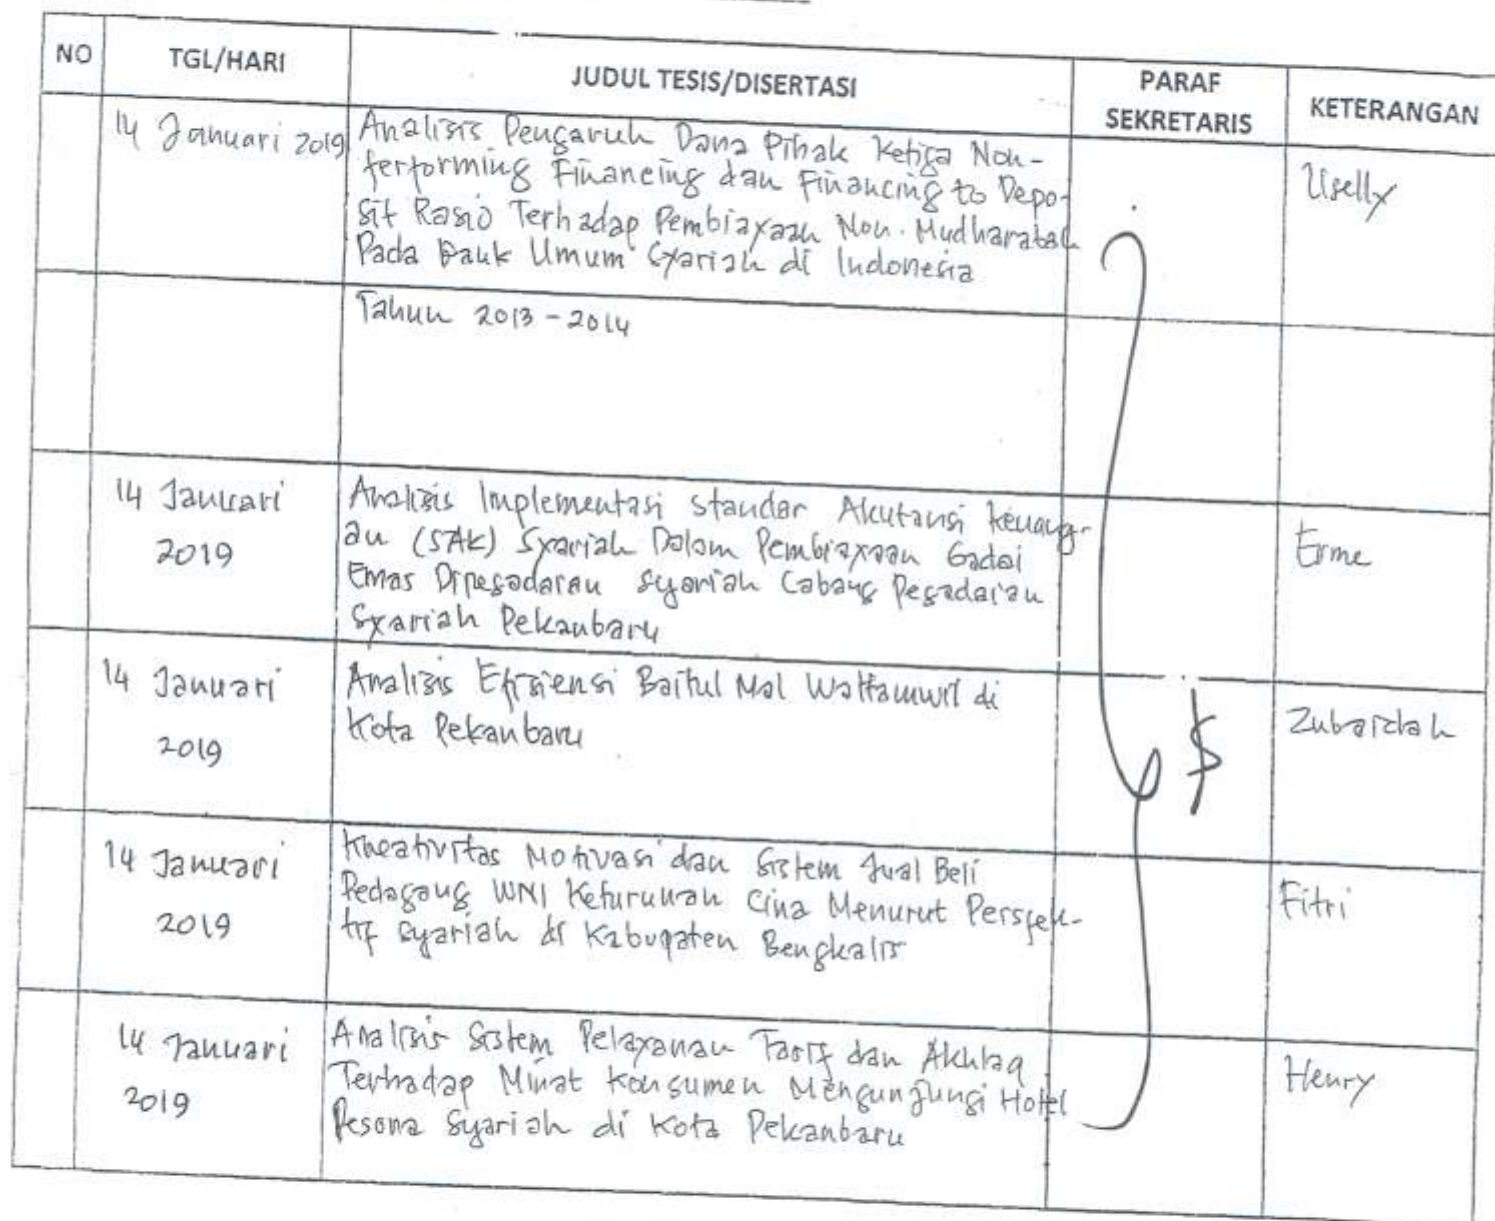 NO TGL/HARI JUDUL TESIS/DISERTASI PARAF SEKRETARIS KETERANGAN
14 Januari 2019 Analisis Pengaruh Dana Pihak Ketiga Non- Uselly
ferforming Financing dan Financing to Depo-
sit Rasio Terhadap Pembiayaan Non. Mudharabah
Pada Bank Umum Syariah di Indonesia
Tahun 2013 - 2014
14 Januari Analisis Implementasi Standar Akutansi Keuang- Erme
2019 an (SAK) Syariah Dalam Pembiayaan Gadai
Emas Dipegadaian Syariah Cabang Pegadaian
Syariah Pekanbaru
14 Januari Analisis Efisiensi Baitul Mal Wattamwil di Zubaidah
2019 Kota Pekanbaru
14 Januari Kreativitas Motivasi dan Sistem Jual Beli Fitri
2019 Pedagang WNI Keturunan Cina Menurut Perspek-
tif Syariah di Kabupaten Bengkalis
14 Januari Analisis Sistem Pelayanan Tarif dan Akhlaq Henry
2019 Terhadap Minat Konsumen Mengunjungi Hotel
Pesona Syariah di Kota Pekanbaru